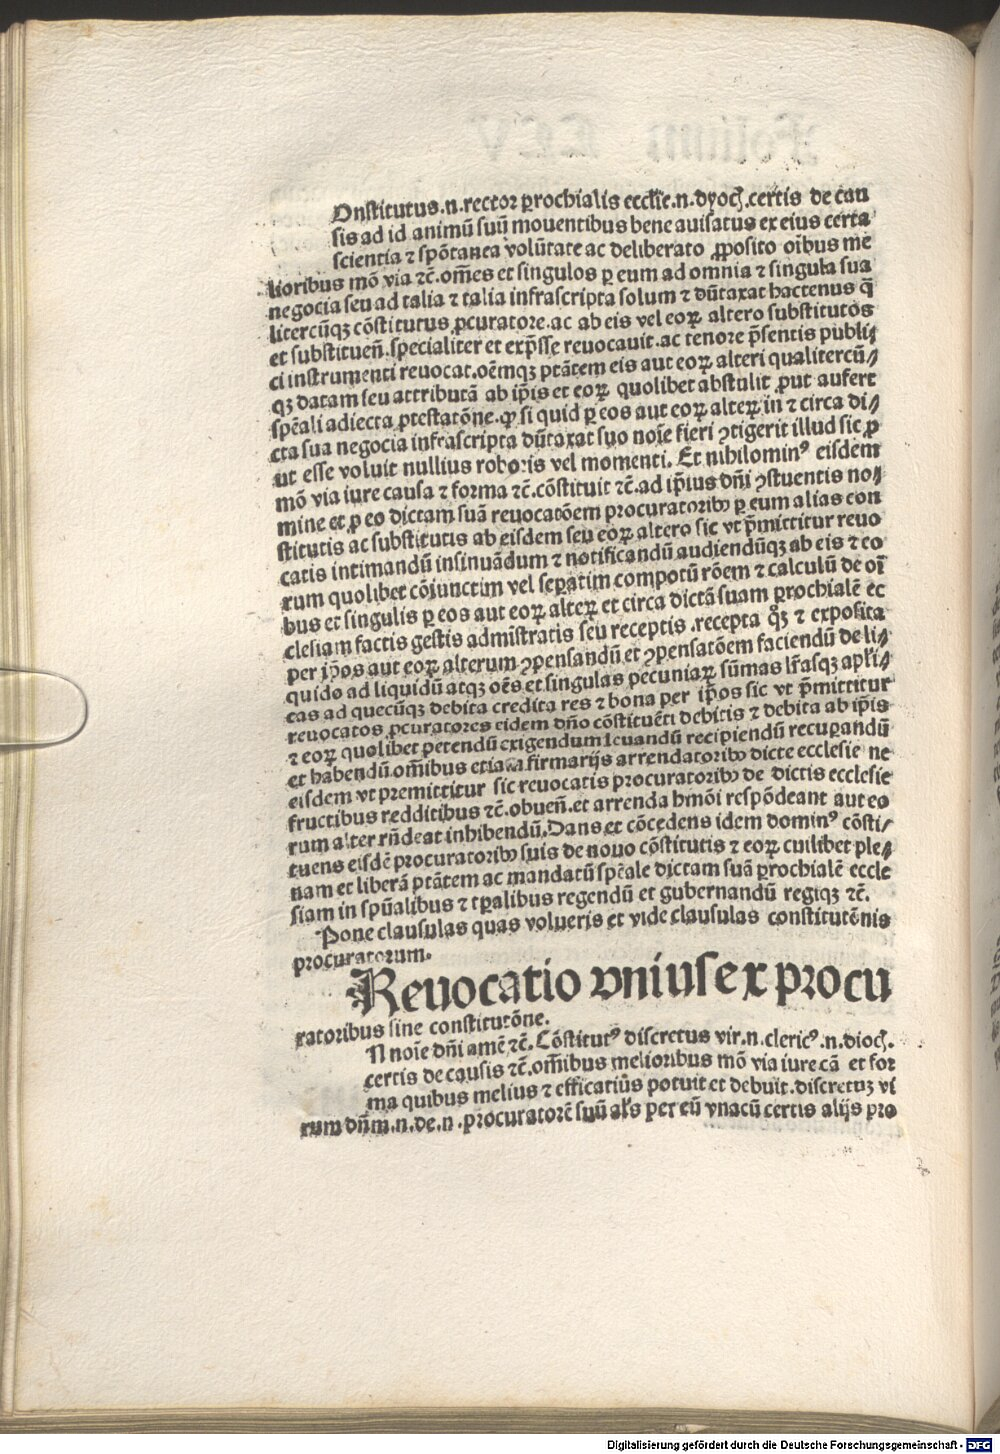 Onstitutus.n.rector ꝑrochialis ecclie̅.n.dyoc̅.certis de cau
sis ad id animū suū moventibus bene avisatus ex eius certa
scientia ⁊ spōtanea volūtate ac deliberato ꝓposito oībus me
lioribus mō via ⁊c̄.om̄es et singulos ꝑ eum ad omnia ⁊ singula sua
negocia seu ad talia ⁊ talia infrascripta solum ⁊ dūtaxat hactenus q̄
litercūqꝫ cōstitutus ꝓcuratore.ac ab eis vel eoꝝ altero substitutos
et substituen̄.specialiter et exp̄sse revocavit.ac tenore p̄sentis publi⸗
ci instrumenti revocat.oēmqꝫ ptātem eis aut eoꝝ alteri qualitercū⸗
qꝫ datam seu attributā ab ip̄is et eoꝝ quolibet abstulit ꝓut aufert
spēali adiecta ꝓtestatōne.ꝙ si quid ꝑ eos aut eoꝝ alteꝝ in ⁊ circa di⸗
cta sua negocia infrascripta dūtaxat suo noīe fieri ꝯtigerit illud sic ꝓ
ut esse voluit nullius roboris vel momenti. Et nihilominꝰ eisdem
mō via iure causa ⁊ forma ⁊c̄.cōstituit ⁊c̄.ad ip̄ius dn̄i ꝯstuentis no⸗
mine et ꝓ eo dictam suā revocatōem procuratoribꝫ ꝑ eum alias con
stitutis ac substitutis ab eisdem seu eoꝝ altero sic vt p̄mittitur revo
catis intimandū insinuādum ⁊ notificandū audiendūqꝫ ab eis ⁊ eo
rum quolibet cōiunctim vel seꝑatim compotū rōem ⁊ calculū de oī
bus et singulis ꝑ eos aut eoꝝ alteꝝ et circa dictā suam ꝑrochialē ec
clesiam factis gestis admīstratis seu receptis.recepta qꝫ ⁊ exposita
per ip̄os aut eoꝝ alterum ꝯpensandū et ꝯpensatōem faciendū de li⸗
quido ad liquidū atqꝫ oēs et singulas pecuniaꝝ sūmas lr̄asqꝫ apl̄i⸗
cas ad quecūqꝫ debita credita res ⁊ bona per ip̄os sic vt p̄mittitur
revocatos ꝓcuratores eidem dn̄o cōstituēti debitis ⁊ debita ab ip̄is
⁊ eoꝝ quolibet petendū exigendum levandū recipiendū recuꝑandū
et habendū.om̄ibus etiam firmarijs arrendatoribꝫ dicte ecclesie ne
eisdem vt premittitur sic revocatis procuratoribꝫ de dictis ecclesie
fructibus redditibus ⁊c̄.obuen̄.et arrenda hmōi respōdeant aut eo
rum alter rn̄deat inhibendū.Dans et cōcedens idem dominꝰ cōsti⸗
tuens eisdē procuratoribꝫ suis de novo cōstitutis ⁊ eoꝝ cuilibet ple⸗
nam et liberā ptātem ac mandatū spēale dictam suā ꝑrochialē eccle
siam in spūalibus ⁊ tꝑalibus regendū et gubernandū regiqꝫ ⁊c̄.
Pone clausulas quas volueris et vide clausulas constitutēnis
procuratorum.
Revocatio vnius ex procu
ratoribus sine constitutōne.
N noīe dn̄i amē ⁊c̄. Cōstitutꝰ discretus vir.n.clericꝰ.n.dioc̄.
certis de causis ⁊c̄.om̄ibus melioribus mō via iure cā et for
ma quibus melius ⁊ efficatiūs potuit et debuit.discretuꝫ vi
rum dn̄m.n.de.n.procuratorē suū als̄ per eū vnacū certis alijs pro
Digitalisierung gefördert durch die Deutsche Forschungsgemeinschaft - DFG